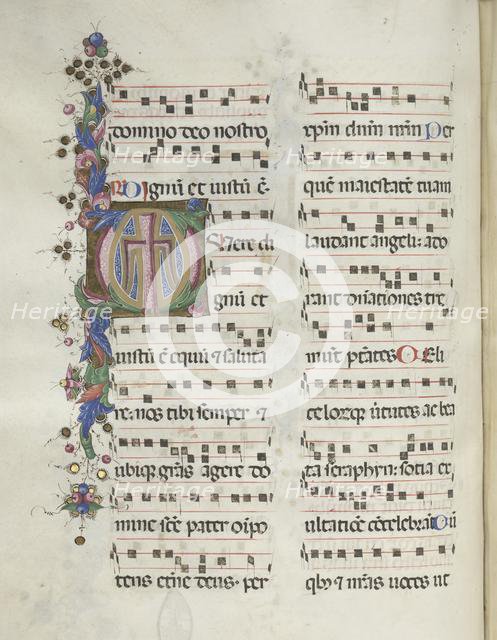 domino deo nostro
Dignū et iustū ē.
Vere di
gnū et
iustū ē equū ⁊ saluta
re: nos tibi semper ⁊
ubiqꝫ grās agere do
mine scē pater oīpo
tens eterne deus: per
xp̄m dn̄m nr̄m Per
quē maiestatē tuam
laudant angeli: ado
rant dn̄ationes tre
mūt ptates Celi
celorꝫ uirtutes ac bea
ta seraphyn: sotia ex
ultatiōe cōcelebrāt Cū
qbꝫ ⁊ nr̄as uoces ut
Heritage
Heritage
Heritage
Heritage
Heritage
Heritage
Heritage
Heritage